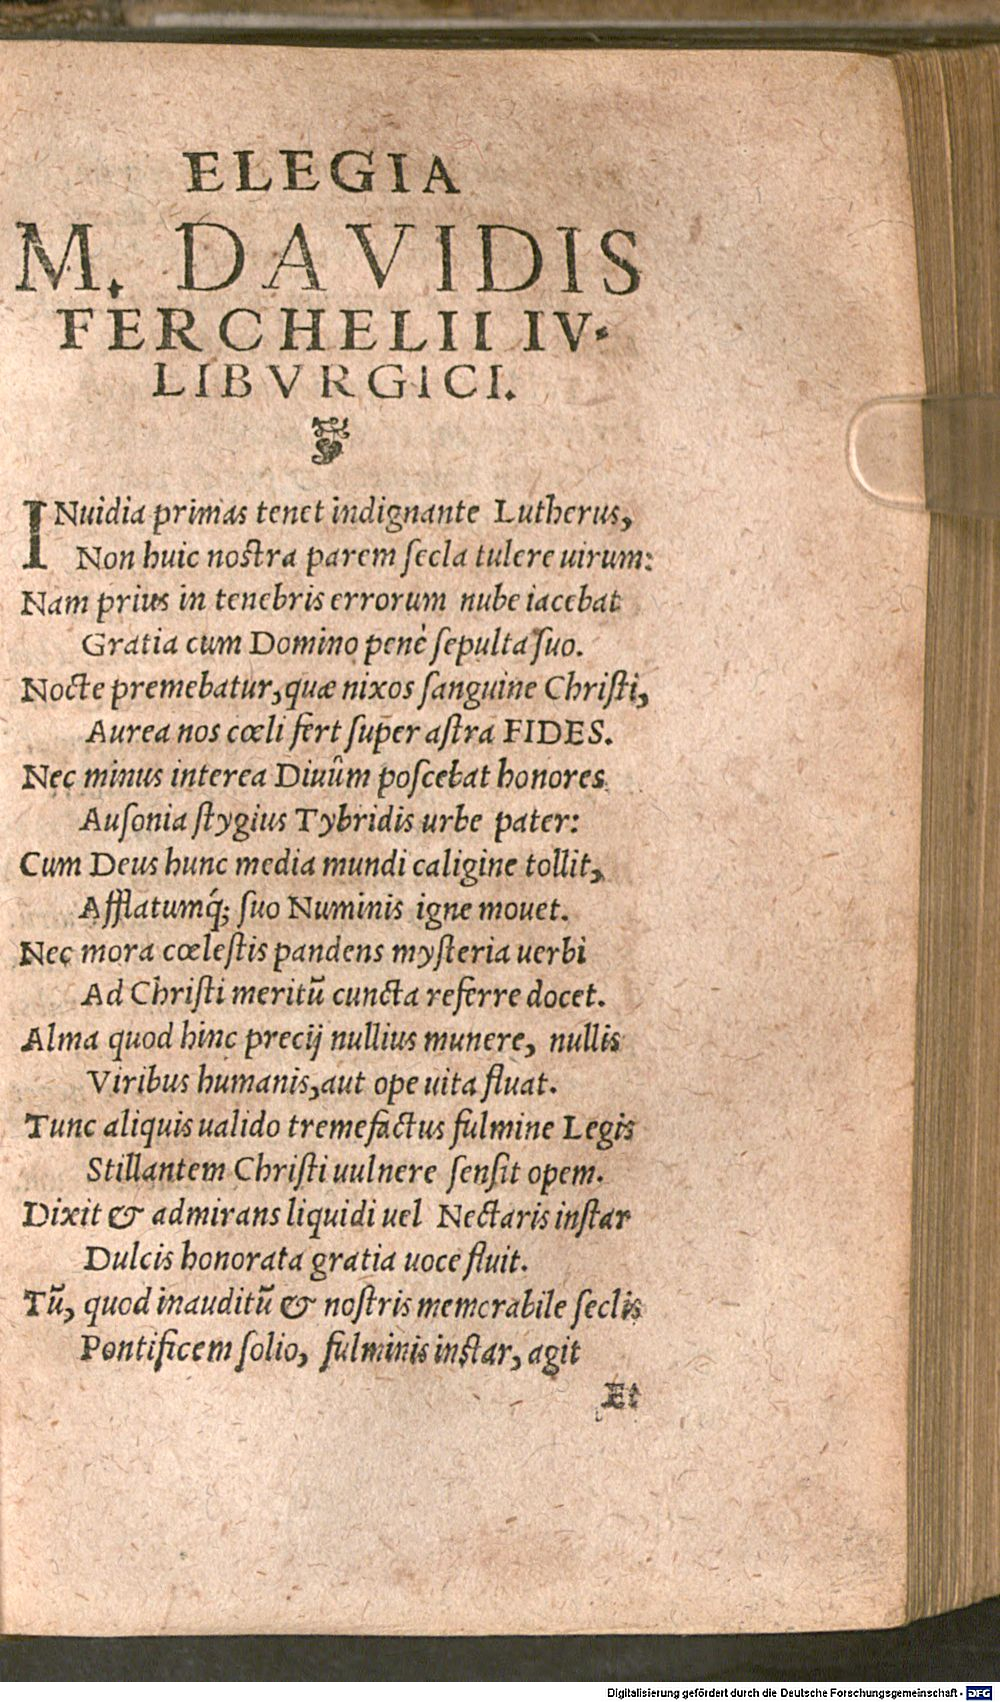 ELEGIA
M. DAVIDIS
FERCHELII IV-
LIBVRGICI.
INuidia primas tenet indignante Lutherus,
Non huic nostra parem secla tulere uirum:
Nam prius in tenebris errorum nube iacebat
Gratia cum Domino penè sepulta suo.
Nocte premebatur, quæ nixos sanguine Christi,
Aurea nos cœli fert super astra FIDES.
Nec minus interea Diuûm poscebat honores
Ausonia stygius Tybridis urbe pater:
Cum Deus hunc media mundi caligine tollit,
Afflatumq́; suo Numinis igne mouet.
Nec mora cœlestis pandens mysteria uerbi
Ad Christi meritũ cuncta referre docet.
Alma quod hinc precij nullius munere, nullis
Viribus humanis, aut ope uita fluat.
Tunc aliquis ualido tremefactus fulmine Legis
Stillantem Christi uulnere sensit opem.
Dixit & admirans liquidi uel Nectaris instar
Dulcis honorata gratia uoce fluit.
Tũ, quod inauditũ & nostris memorabile seclis
Pontificem solio, fulminis instar, agit
Et
Digitalisierung gefördert durch die Deutsche Forschungsgemeinschaft - DFG